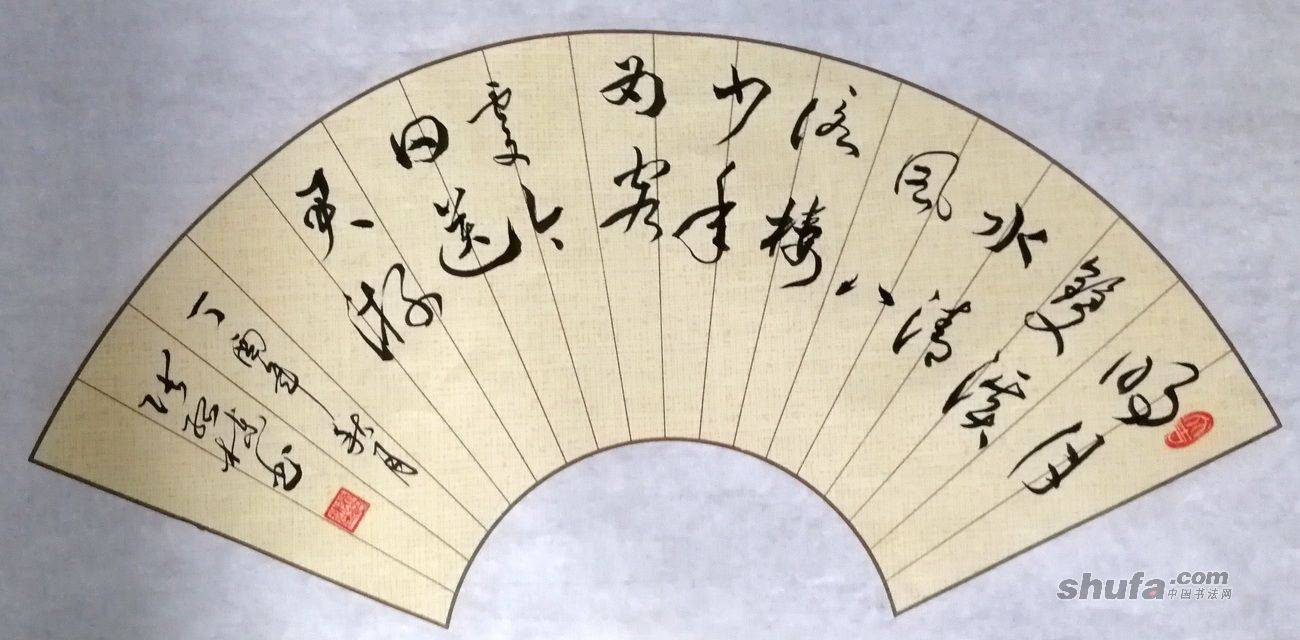 明月
雙溪
水清
風八
詠樓
少年
為客
處今
日送
君游
丁酉
書
shufa.com
中国书法网